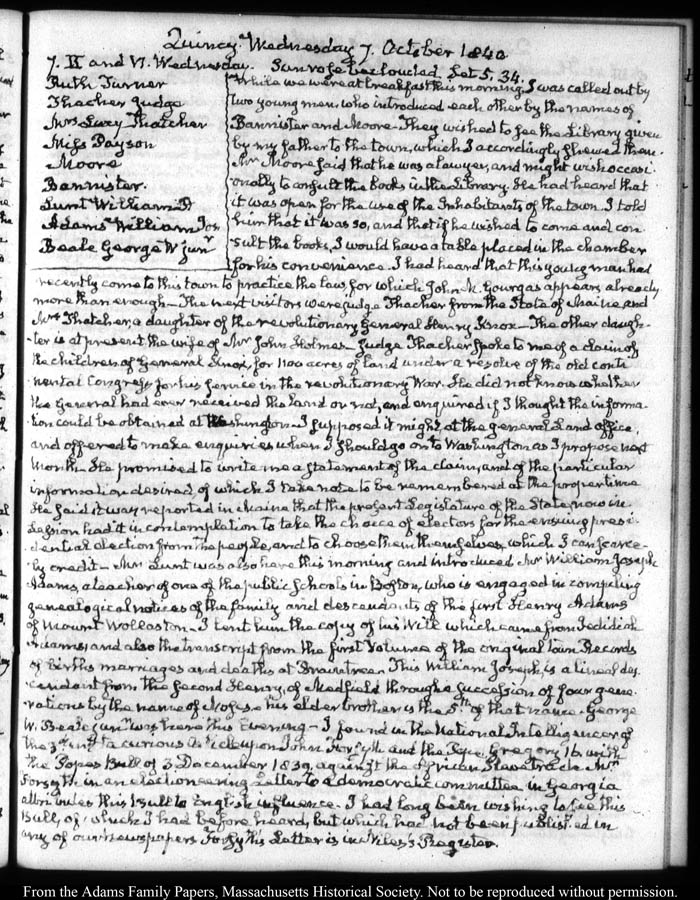 Quincy Wednesday 7. October 1840
7. IX and VI. Wednesday. Sun rose beclouded. Set 5. 34.
Ruth Turner
Thacher Judge
Mrs Lucy Thatcher
Miss Payson
Moore
Bannister.
Lunt William P
Adams William Jos.
Beale George W junr
While we were at breakfast this morning, I was called out by
two young men, who introduced each other by the names of
Bannister and Moore. They wished to see the Library given
by my father to the town, which I accordingly shewed them.
Mr Moore said that he was a lawyer, and might wish occasi-
onally to consult the books in the Library. He had heard that
it was open for the use of the Inhabitants of the town. I told
him that it was so, and that if he wished to come and con-
sult the books, I would have a table placed in the chamber
for his convenience. I had heard that this young man had
recently come to this town to practice the law, for which John M. Gourgas appears already
more than enough— The next visitors were Judge Thacher from the State of Maine and
Mrs Thatcher, a daughter of the revolutionary General Henry Knox— The other daugh-
ter is at present the wife of Mr John Holmes. Judge Thacher spoke to me of a claim of
the children of General Knox, for 1100 acres of land under a resolve of the old conti-
nental Congress for his service in the revolutionary War. He did not know whether
the General had ever received the land or not, and enquired if I thought the informa-
tion could be obtained at Washington— I supposed it might at the general Land office,
and offered to make enquiries when I should go on to Washington as I propose next
Month. He promised to write me a statement of the claim, and of the particular
information desired, of which I take note to be remembered at the proper time
He said it was reported in Maine that the present Legislature of the State, now in
Session had it in contemplation to take the choice of electors for the ensuing presi-
dential election from the people, and to choose them themselves, which I can scarce-
ly credit— Mr Lunt was also here this morning and introduced Mr William Joseph
Adams, a teacher of one of the public Schools in Boston, who is engaged in compiling
genealogical notices of the family and descendants of the first Henry Adams
of Mount Wollaston— I lent him the copy of his Will which came from Jedidiah
Adams, and also the transcript from the first Volume of the original Town Records
of births marriages and deaths at Braintree. This William Joseph, is a lineal des-
cendant from the second Henry, of Medfield through a succession of four gene-
rations by the name of Moses— his elder brother is the 5th of that name. George
W. Beale junr was here this Evening— I found in the National Intelligencer of
the 3d inst a curious Article upon John Forsyth and the Pope, Gregory 16. with
the Popes Bull of 3 December 1839, against the African Slave trade. Mr
Forsyth in an electioneering Letter to a democratic committee in Georgia
attributes this Bull to English influence. I had long been wishing to see this
Bull, of which I had before heard, but which had not been published in
any of our newspapers Forsyth's Letter is in Niles's Register.
From the Adams Family Papers, Massachusetts Historical Society. Not to be reproduced without permission.